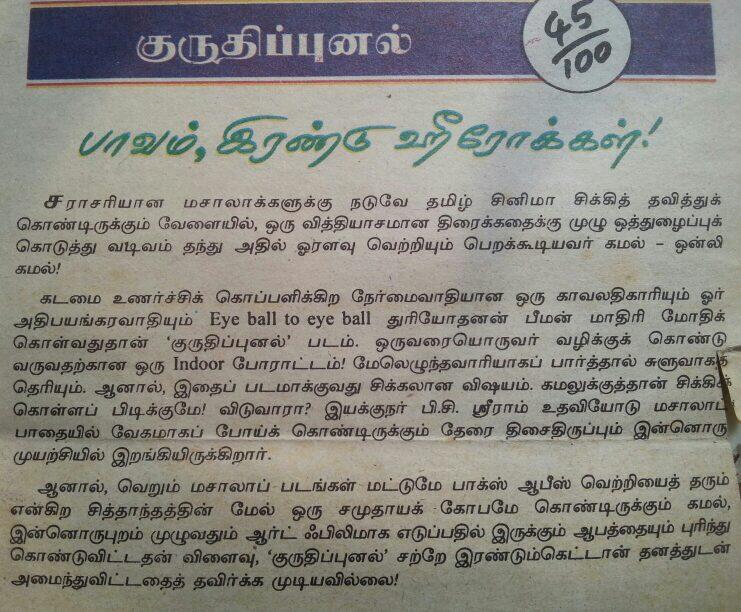 குருதிப்புனல்
45/100
பாவம், இரண்டு ஹீரோக்கள்!
சராசரியான மசாலாக்களுக்கு நடுவே தமிழ் சினிமா சிக்கித் தவித்துக்
கொண்டிருக்கும் வேளையில், ஒரு வித்தியாசமான திரைக்கதைக்கு முழு ஒத்துழைப்புக்
கொடுத்து வடிவம் தந்து அதில் ஓரளவு வெற்றியும் பெறக்கூடியவர் கமல் – ஒன்லி
கமல்!
கடமை உணர்ச்சிக் கொப்பளிக்கிற நேர்மைவாதியான ஒரு காவலதிகாரியும் ஓர்
அதிபயங்கரவாதியும் Eye ball to eye ball துரியோதனன் பீமன் மாதிரி மோதிக்
கொள்வதுதான் ‘குருதிப்புனல்’ படம். ஒருவரையொருவர் வழிக்குக் கொண்டு
வருவதற்கான ஒரு Indoor போராட்டம்! மேலெழுந்தவாரியாகப் பார்த்தால் சுளுவாகத்
தெரியும். ஆனால், இதைப் படமாக்குவது சிக்கலான விஷயம். கமலுக்குத்தான் சிக்கிக்
கொள்ளப் பிடிக்குமே! விடுவாரா? இயக்குநர் பி.சி. ஸ்ரீராம் உதவியோடு மசாலாப்
பாதையில் வேகமாகப் போய்க் கொண்டிருக்கும் தேரை திசைதிருப்பும் இன்னொரு
முயற்சியில் இறங்கியிருக்கிறார்.
ஆனால், வெறும் மசாலாப் படங்கள் மட்டுமே பாக்ஸ் ஆபீஸ் வெற்றியைத் தரும்
என்கிற சித்தாந்தத்தின் மேல் ஒரு சமுதாயக் கோபமே கொண்டிருக்கும் கமல்,
இன்னொருபுறம் முழுவதும் ஆர்ட் ஃபிலிமாக எடுப்பதில் இருக்கும் ஆபத்தையும் புரிந்து
கொண்டுவிட்டதன் விளைவு, ‘குருதிப்புனல்’ சற்றே இரண்டும்கெட்டான் தனத்துடன்
அமைந்துவிட்டதைத் தவிர்க்க முடியவில்லை!